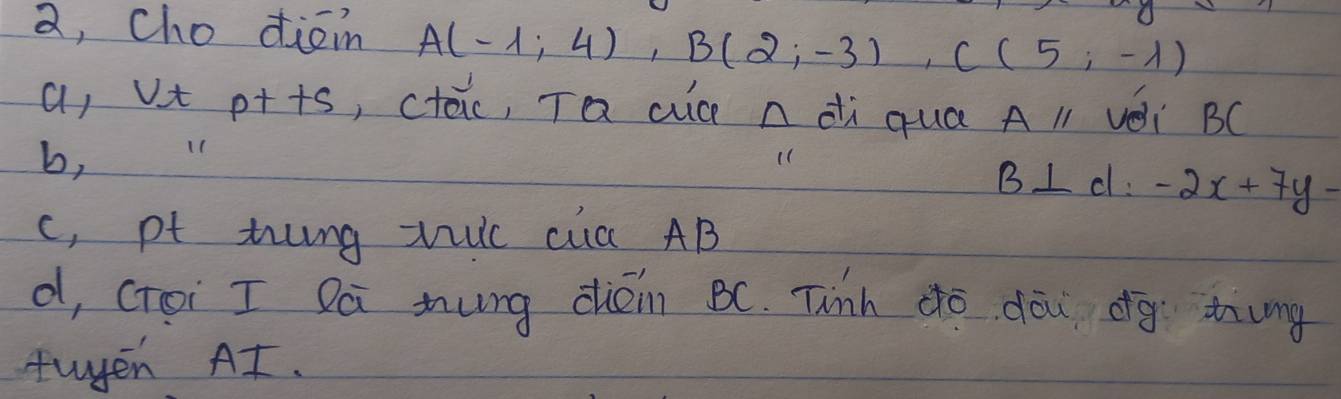 2, Cho điểm A(-1; 4), B(2; -3), C(5; -1)
a, Vt pt ts, ctắc, TQ của Δ đi qua A // với BC
b, " " B ⊥ d: -2x + 7y -
c, pt trung trực của AB
d, Gọi I là trung điểm BC. Tính độ dài đg trung
tuyến AI.